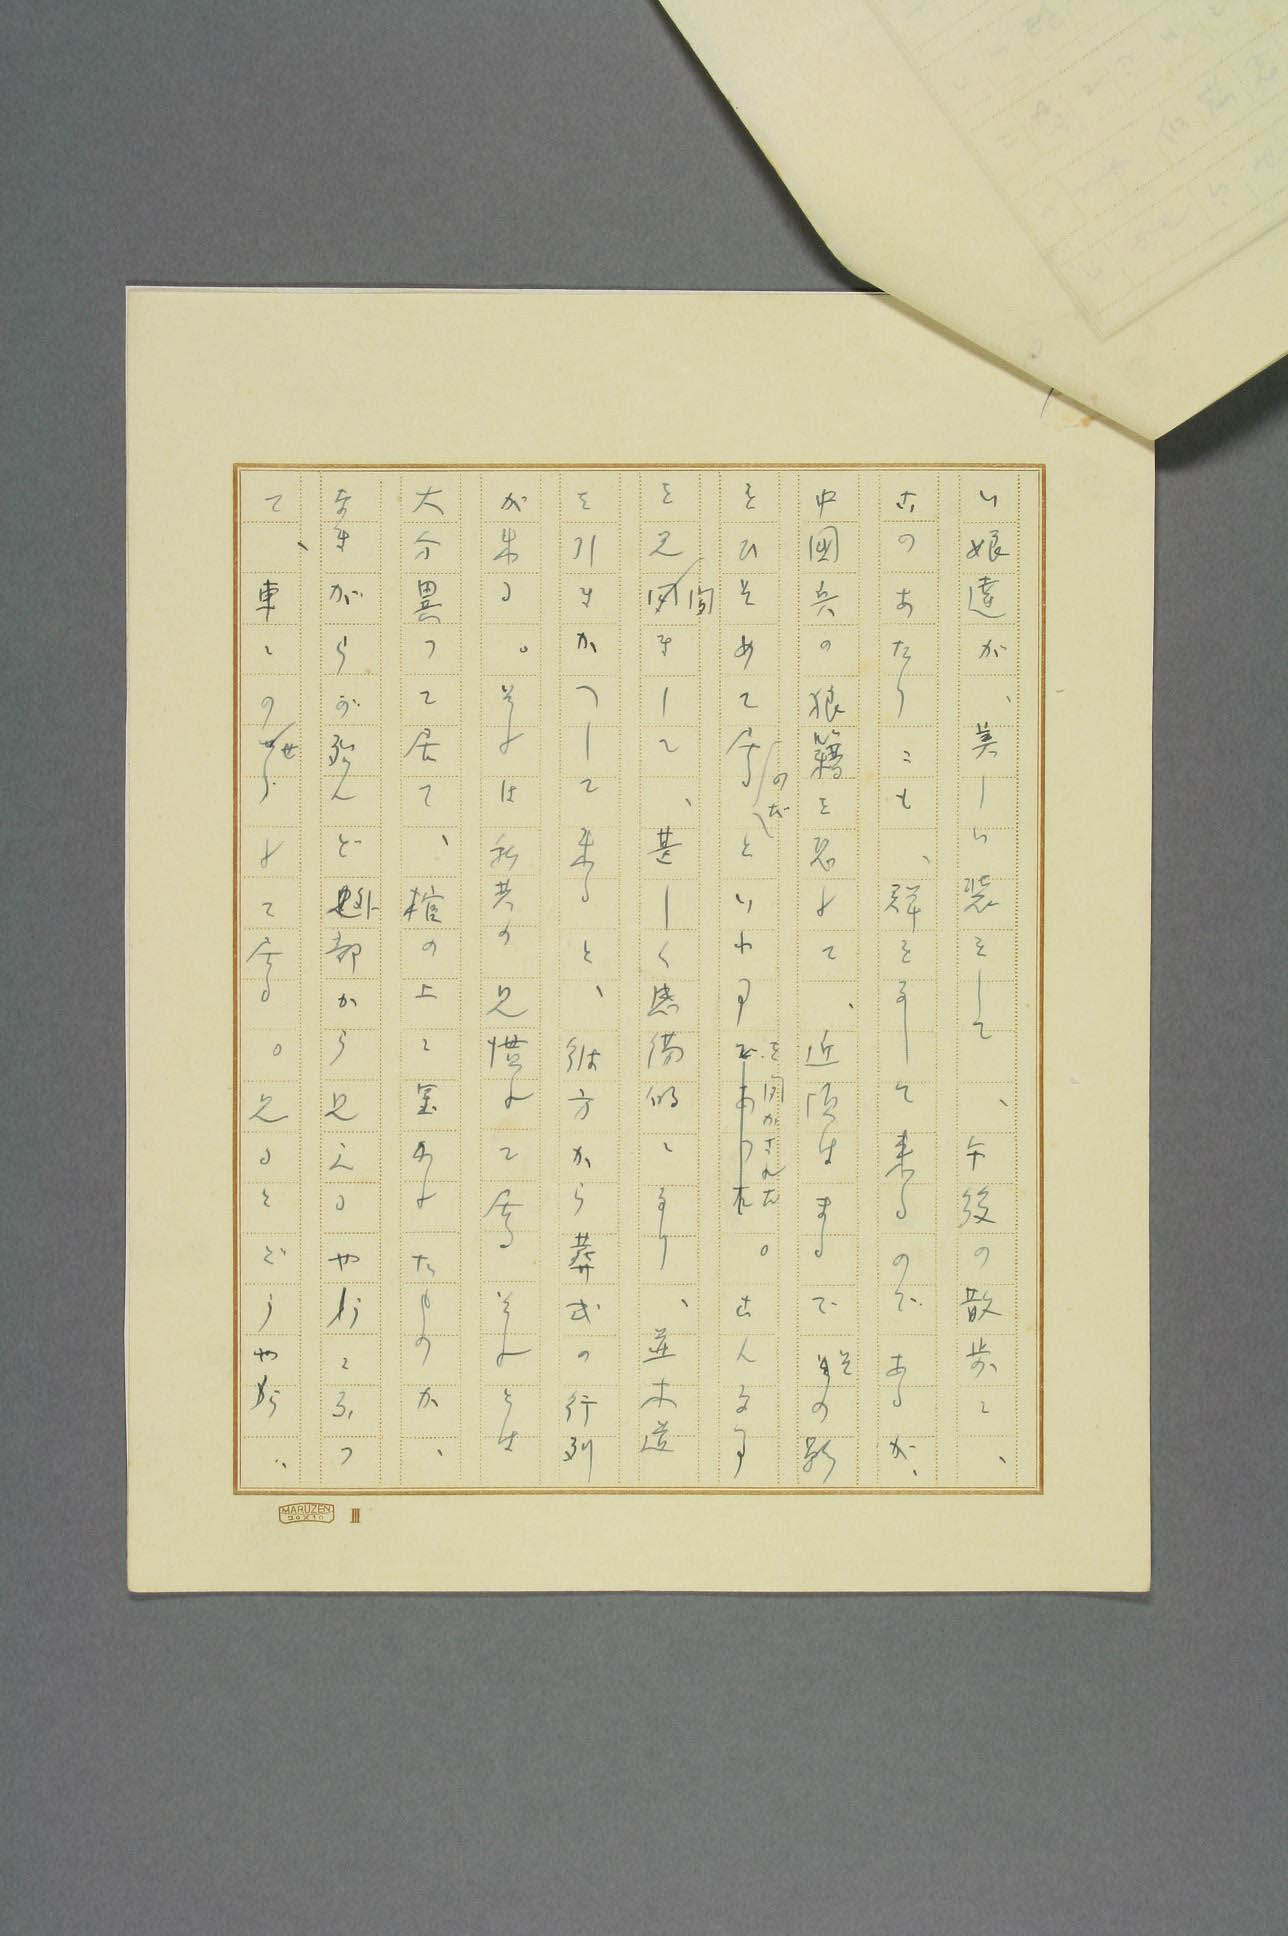 い娘達が、美しい装をして、午後の散歩に、
このあたりにも、群をなして来るのであるが、
中國兵の狼籍を恐れて、近頃はまるでその影
をひそめて居るのだといふ事を聞かされた。こんな事
を見聞きして、甚しく感傷的になり、並木道
を引きかへして来ると、彼方から葬式の行列
が来る。それは私共の見慣れて居るそれとは
大分異つて居て、棺の上に置かれたものか、
なきがらが殆んど外部から見えるやうになつ
て、車にのせられて居る。見るとどうやら、
MARUZEN
20×10
III